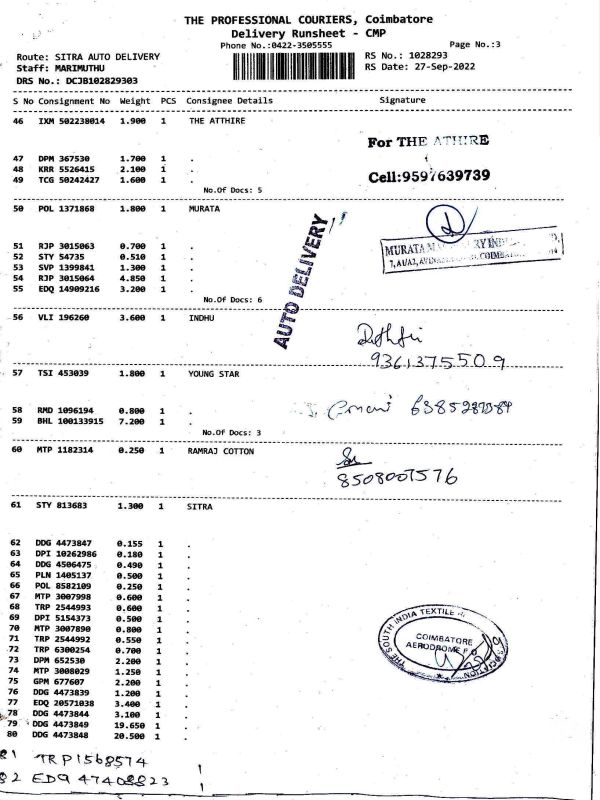 THE PROFESSIONAL COURIERS, Coimbatore
Delivery Runsheet - CMP
Phone No.:0422-3505555
Page No.:3
Route: SITRA AUTO DELIVERY
RS No.: 1028293
Staff: MARIMUTHU
RS Date: 27-Sep-2022
DRS No.: DCJB102829303
S No Consignment No Weight PCS Consignee Details Signature
46 IXM 502238014 1.900 1 THE ATTHIRE
For THE ATHIRE
47 DPM 367530 1.700 1 .
48 KRR 5526415 2.100 1 .
Cell:9597639739
49 TCG 50242427 1.600 1 .
No.Of Docs: 5
50 POL 1371868 1.800 1 MURATA
AUTO DELIVERY
MURATA
51 RJP 3015063 0.700 1 .
52 STY 54735 0.510 1 .
53 SVP 1399841 1.300 1 .
54 RJP 3015064 4.850 1 .
55 EDQ 14909216 3.200 1 .
No.Of Docs: 6
56 VLI 196260 3.600 1 INDHU
9361375509
57 TSI 453039 1.800 1 YOUNG STAR
58 RMD 1096194 0.800 1 .
59 BHL 100133915 7.200 1 .
No.Of Docs: 3
60 MTP 1182314 0.250 1 RAMRAJ COTTON
8508007576
61 STY 813683 1.300 1 SITRA
62 DDG 4473847 0.155 1 .
63 DPI 10262986 0.180 1 .
64 DDG 4506475 0.490 1 .
65 PLN 1405137 0.500 1 .
66 POL 8582109 0.250 1 .
67 MTP 3007998 0.600 1 .
68 TRP 2544993 0.600 1 .
69 DPI 5154373 0.500 1 .
70 MTP 3007890 0.800 1 .
71 TRP 2544992 0.550 1 .
72 TRP 6300254 0.700 1 .
73 DPM 652530 2.200 1 .
74 MTP 3008029 1.250 1 .
75 GPM 677607 2.200 1 .
76 DDG 4473839 1.200 1 .
77 EDQ 20571038 3.400 1 .
78 DDG 4473844 3.100 1 .
79 DDG 4473849 19.650 1 .
80 DDG 4473848 20.500 1 .
THE SOUTH INDIA TEXTILE
COIMBATORE
AERODROME P.O
81 TRP1568574
82 EDQ 47408823